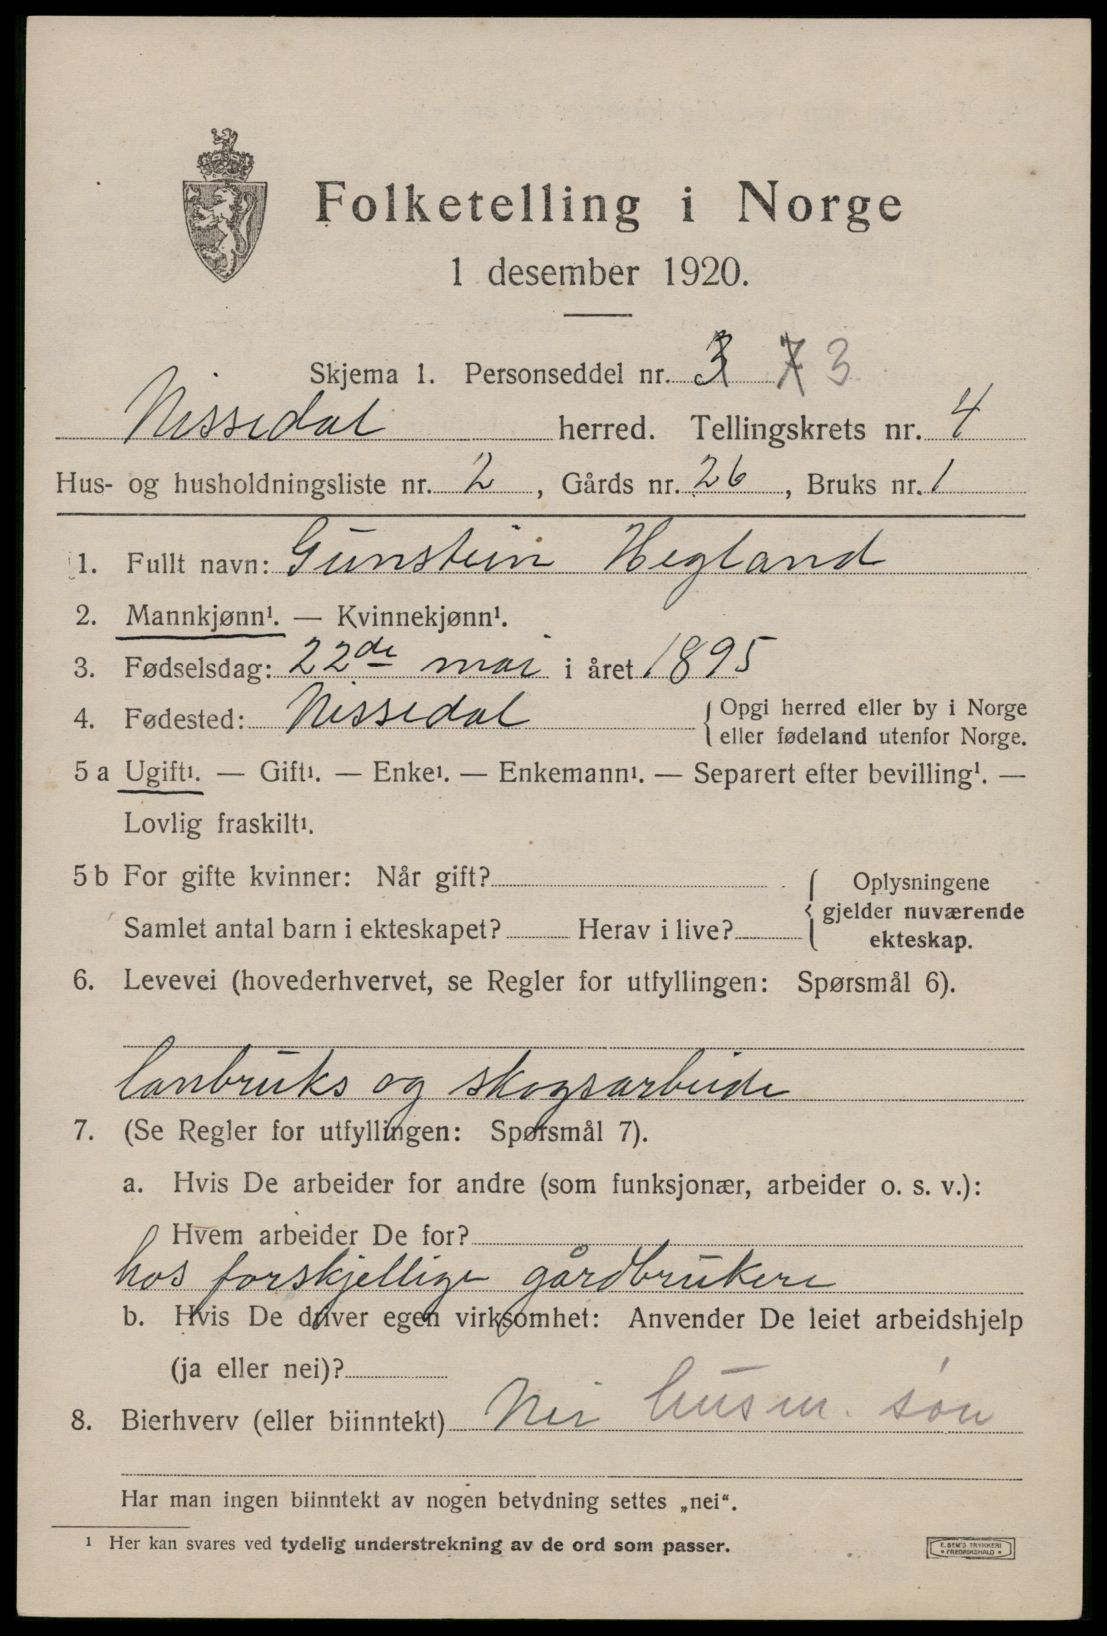 Folketelling i Norge
1 desember 1920.
Skjema 1. Personseddel nr. 3 7 3
Nissedal herred. Tellingskrets nr. 4
Hus- og husholdningsliste nr. 2, Gårds nr. 26, Bruks nr. 1
1. Fullt navn: Gunstein Hegland
2. Mannkjønn¹. — Kvinnekjønn¹.
3. Fødselsdag: 22de mai i året 1895
4. Fødested: Nissedal { Opgi herred eller by i Norge
eller fødeland utenfor Norge.
5 a Ugift¹. — Gift¹. — Enke¹. — Enkemann¹. — Separert efter bevilling¹. —
Lovlig fraskilt¹.
5 b For gifte kvinner: Når gift? { Oplysningene
gjelder nuværende
Samlet antal barn i ekteskapet? Herav i live? ekteskap.
6. Levevei (hovederhvervet, se Regler for utfyllingen: Spørsmål 6).
lanbruks og skogsarbeide
7. (Se Regler for utfyllingen: Spørsmål 7).
a. Hvis De arbeider for andre (som funksjonær, arbeider o. s. v.):
Hvem arbeider De for?
hos forskjellige gårdbrukere
b. Hvis De driver egen virksomhet: Anvender De leiet arbeidshjelp
(ja eller nei)?
8. Bierhverv (eller biinntekt) Nei husm. søn
Har man ingen biinntekt av nogen betydning settes „nei“.
¹ Her kan svares ved tydelig understrekning av de ord som passer.
E. SEM'S TRYKKERI
* FREDRIKSHALD *